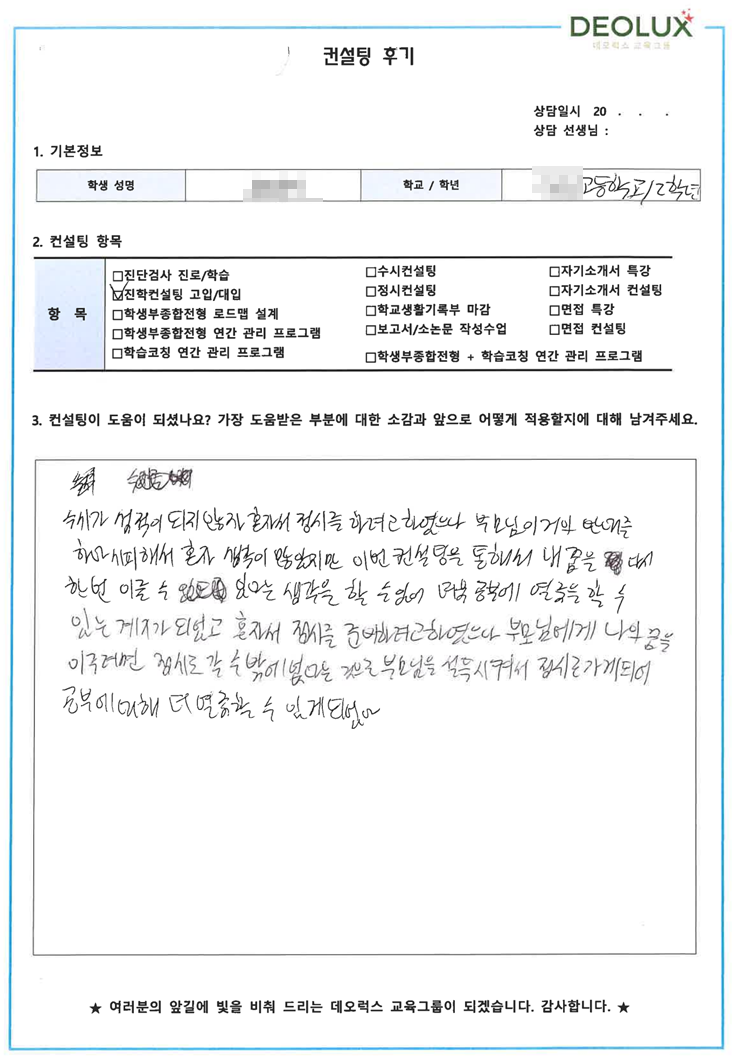 DEOLUX
데오럭스 교육그룹
컨설팅 후기
상담일시 20 . . .
상담 선생님 :
1. 기본정보
학생 성명 학교 / 학년 고등학교/2학년
2. 컨설팅 항목
항 목
□진단검사 진로/학습 □수시컨설팅 □자기소개서 특강
☑진학컨설팅 고입/대입 □정시컨설팅 □자기소개서 컨설팅
□학생부종합전형 로드맵 설계 □학교생활기록부 마감 □면접 특강
□학생부종합전형 연간 관리 프로그램 □보고서/소논문 작성수업 □면접 컨설팅
□학습코칭 연간 관리 프로그램 □학생부종합전형 + 학습코칭 연간 관리 프로그램
3. 컨설팅이 도움이 되셨나요? 가장 도움받은 부분에 대한 소감과 앞으로 어떻게 적용할지에 대해 남겨주세요.
수시가 성적이 되지 않자 혼자서 정시를 하려고하였으나 부모님이 거의 반대를
하다시피해서 혼자 생각이 많았지만 이번 컨설팅을 통해서 내 꿈을 다시
한번 이룰 수 있다는 생각을 할 수있어 더욱 공부에 열중을 할 수
있는 계기가 되었고 혼자서 정시를 준비하려고하였으나 부모님에게 나의 꿈을
이루려면 정시로 갈 수밖에 없다는 것으로 부모님을 설득시켜서 정시로가게되어
공부에 대해 더 열중할 수 있게되었다
★ 여러분의 앞길에 빛을 비춰 드리는 데오럭스 교육그룹이 되겠습니다. 감사합니다. ★